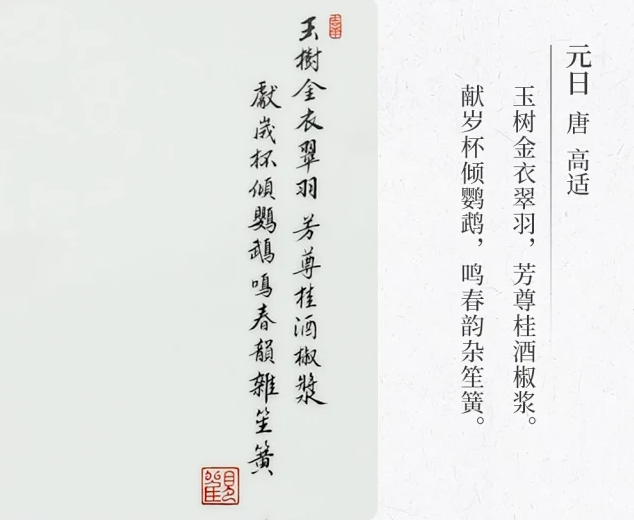 玉樹金衣翠羽芳尊桂酒椒漿
獻歲杯傾鸚鵡鳴春韻雜笙簧
元日 唐 高适
玉树金衣翠羽，芳尊桂酒椒浆。
献岁杯倾鹦鹉，鸣春韵杂笙簧。